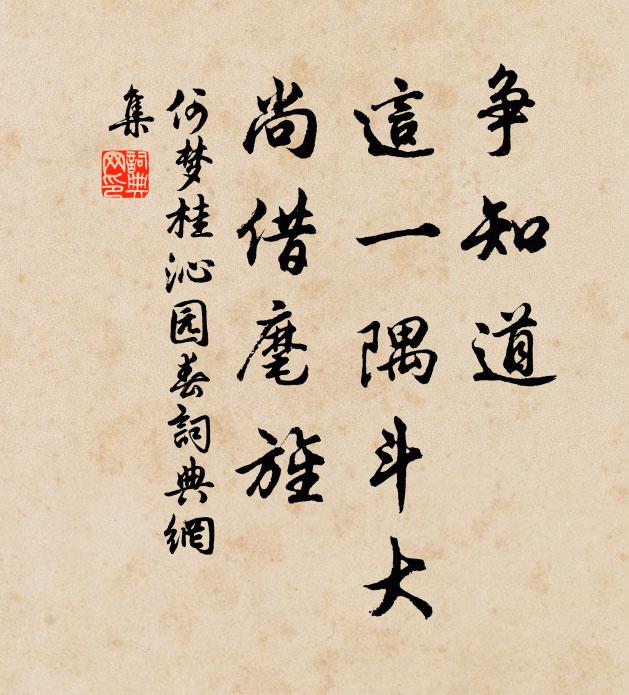 争知道
這一隅斗大
尚借麾旌
何梦桂沁园春詞典網
集
詞典網印